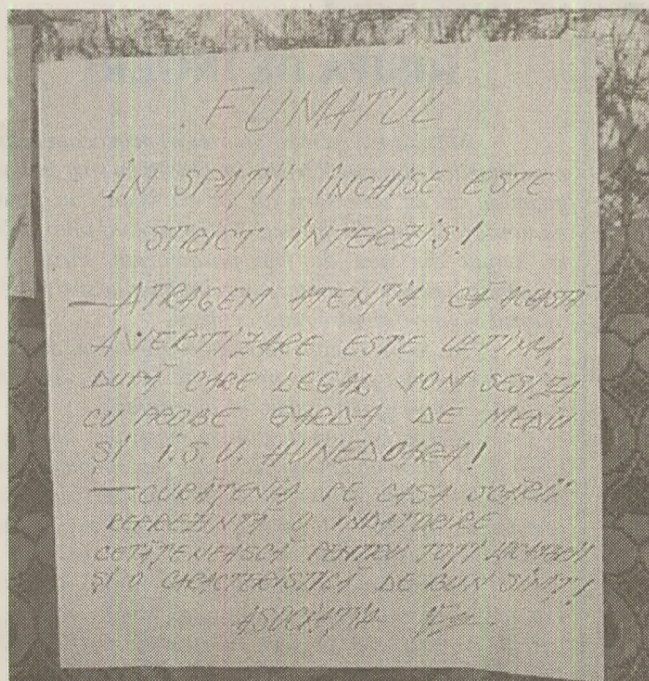 FUMATUL
ÎN SPAȚII ÎNCHISE ESTE
STRICT INTERZIS!
— ATRAGEM ATENȚIA CĂ ACEASTĂ
AVERTIZARE ESTE ULTIMA,
DUPĂ CARE LEGAL VOM SESIZA
CU PROBE GARDA DE MEDIU
ȘI I.S.U. HUNEDOARA!
— CURĂȚENIA PE CASA SCĂRII
REPREZINTĂ O ÎNDATORIRE
CETĂȚENEASCĂ PENTRU TOȚI LOCATARII
ȘI O CARACTERISTICĂ DE BUN SIMȚ!
ASOCIAȚIA